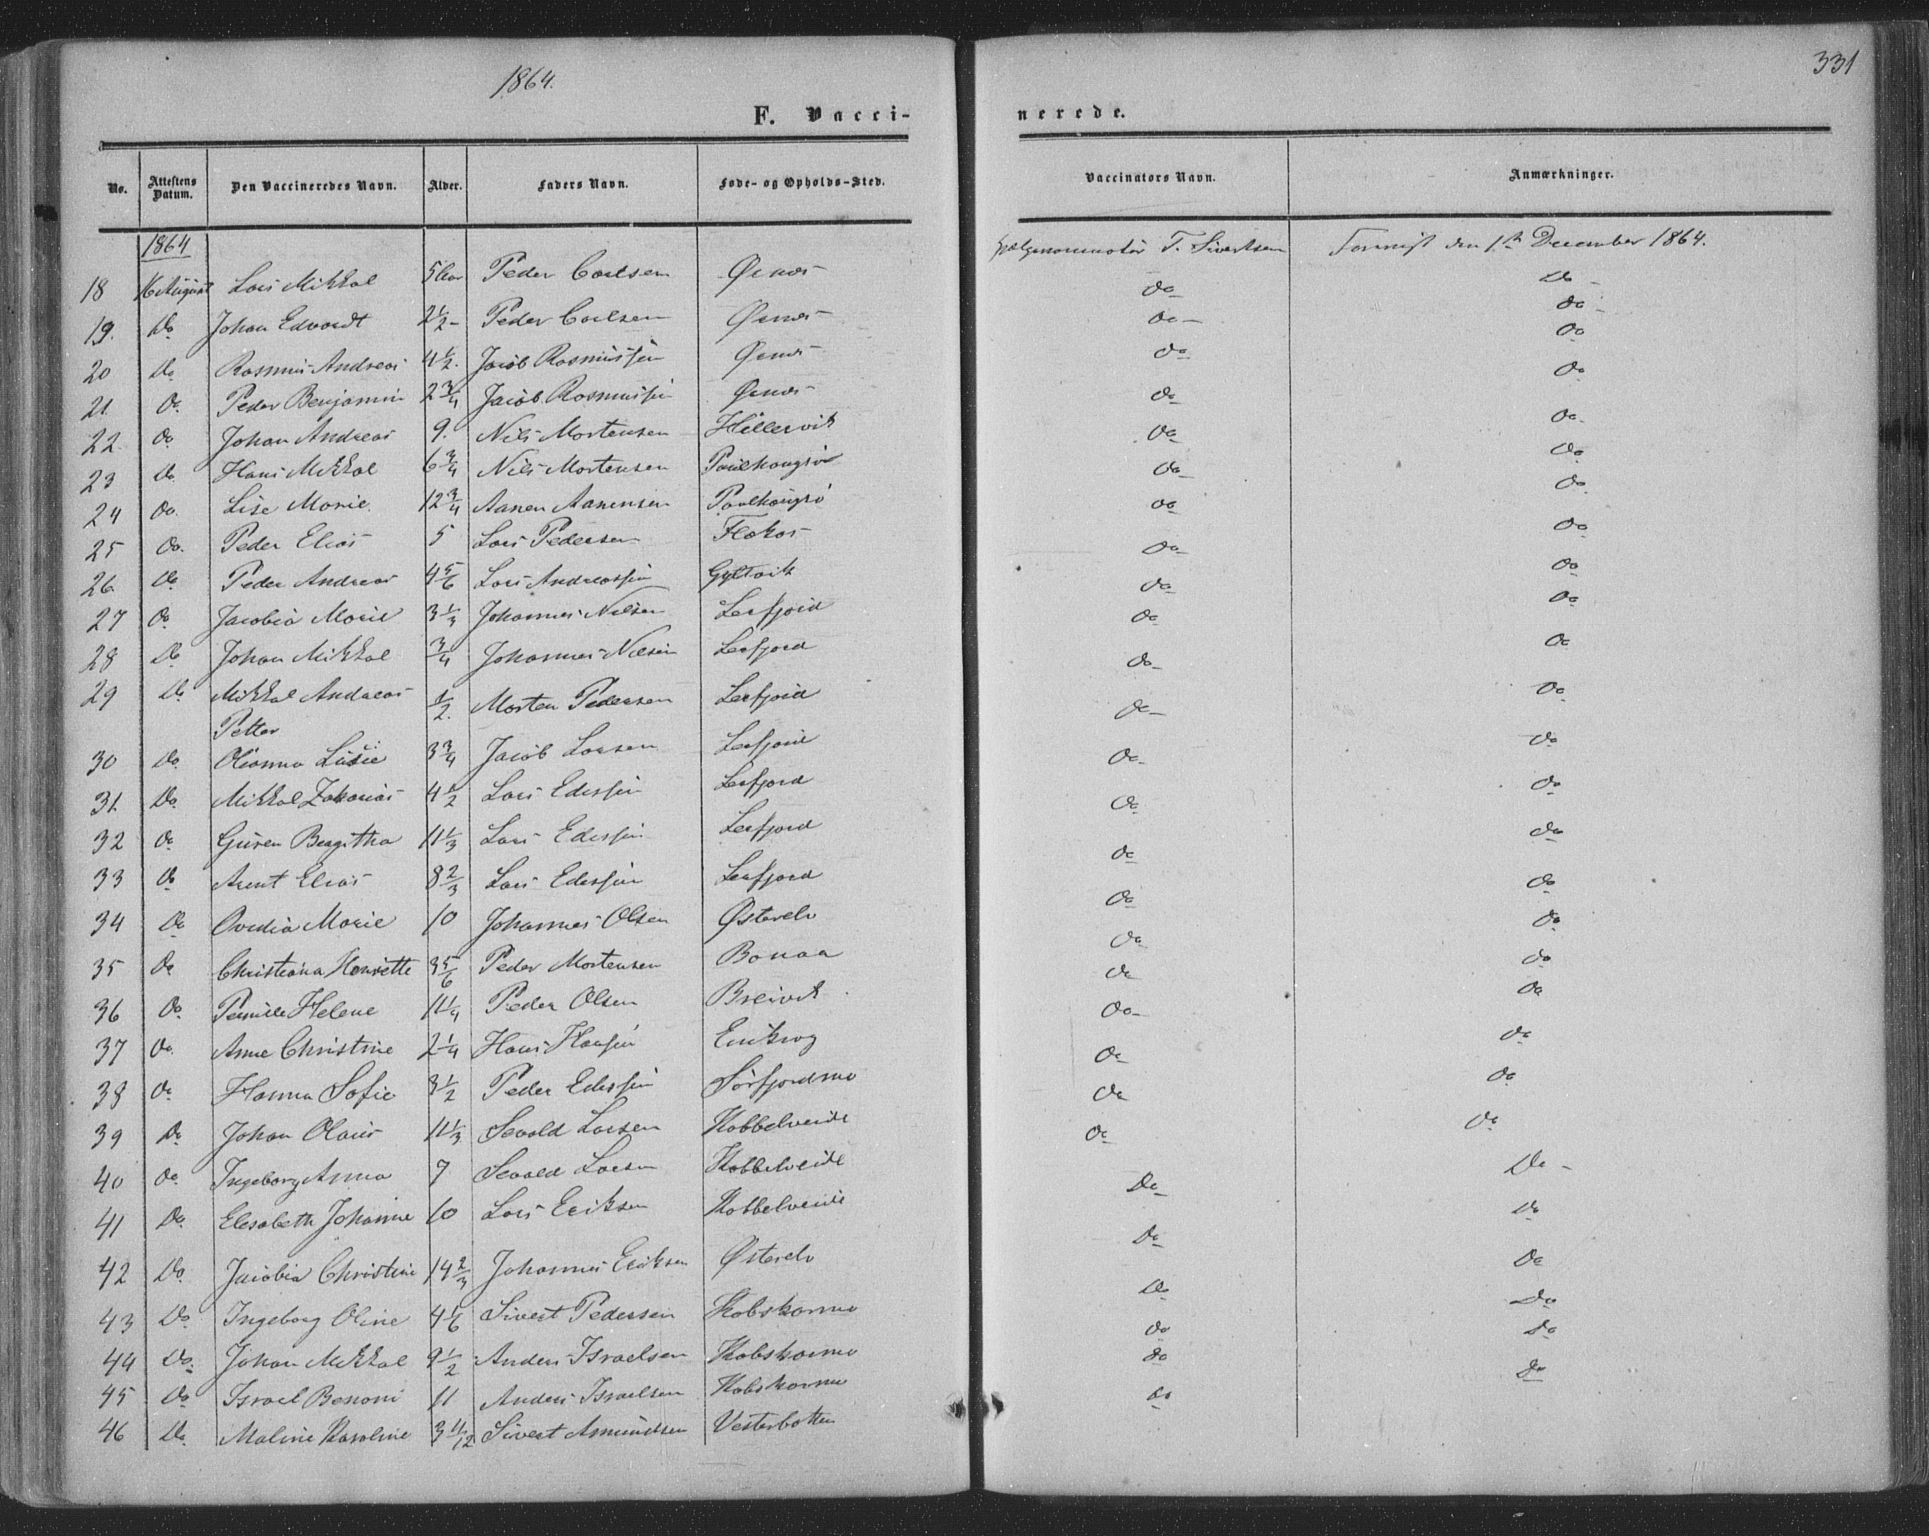 1864.
331
F. Vacci-
nerede.
No. Attestens Datum. Den Vaccineredes Navn. Alder. Faders Navn. Føde- og Opholds-Sted. Vaccinators Navn. Anmærkninger.
1864 T. Sivertsen Fornyet den 1ste December 1864.
18 16 August Lars Mikkal 5 Aar Peder Carlsen Ørnes Do Do
19. Do Johan Edvardt 2 1/2 Peder Carlsen Ørnes Do Do
20 Do Rasmus Andreas 4 1/2. Jacob Rasmussen Ørnes Do Do
21 Do. Peder Benjamin 2 3/4 Jacob Rasmussen Ørnes Do Do
22 Do Johan Andreas 9. Nils Mortensen Hellervik Do Do
23 Do Hans Mikkal 6 3/4 Nils Mortensen Do Do
24 Do. Lise Marie. 12 3/4 Aanen Aanensen Do Do
25 Do. Peder Elias 5 Lars Pedersen Flokos Do Do
26 Do Peder Andreas 4 5/6 Lars Andreassen Gyltvik Do Do
27 Do Jacobia Marie 3 1/3 Johannes Nilsen Lerfjord Do Do
28 Do Johan Mikkal 3/4 Johannes Nilsen Lerfjord Do Do
29 Do Mikkal Andreas Petter 1/2. Morten Pedersen Lerfjord Do Do
30 Do. Olianna Lusie 3 3/4 Jacob Larsen Lerfjord Do Do
31 Do. Mikkal Zakarias 4 1/2 Lars Ederssen Lerfjord Do Do
32 Do Guren Bergitha 11 1/3 Lars Ederssen Lerfjord Do Do
33 Do Arent Elias 8 2/3 Lars Ederssen Lerfjord Do Do
34 Do Ovedia Marie 10 Johannes Olsen Østerelv Do Do
35 Do Christiana Henrette 3 5/6 Peder Mortensen Bonaa Do Do
36 Do. Pernille Helene 11 1/4 Peder Olsen Breivik Do Do
37 Do. Anne Christine 2 1/4 Hans Hansen Do Do
38 Do Hanna Sofie 3 1/2 Peder Ederssen Sørfjordmo Do Do
39 Do Johan Olaus 11 1/3 Sevald Larsen Kobbelveide Do Do
40 Do Ingeborg Anna 7 Sevald Larsen Kobbelveide Do Do
41 Do. Elesabeth Johanne 10 Lars Eriksen Kobbelveide Do Do
42 Do. Jacobia Christine 14 2/3 Johannes Eriksen Østerelv Do Do
43 Do Ingeborg Oline 4 1/6 Sivert Pedersen Kobskarmo Do Do
44 Do. Johan Mikkal 9 1/2 Anders Israelsen Kobskarmo Do Do
45 Do Israel Benoni 11 Anders Israelsen Kobskarmo Do Do
46 Do. Maline Karoline 3 11/12 Sivert Asmundsen Vesterbotten Do